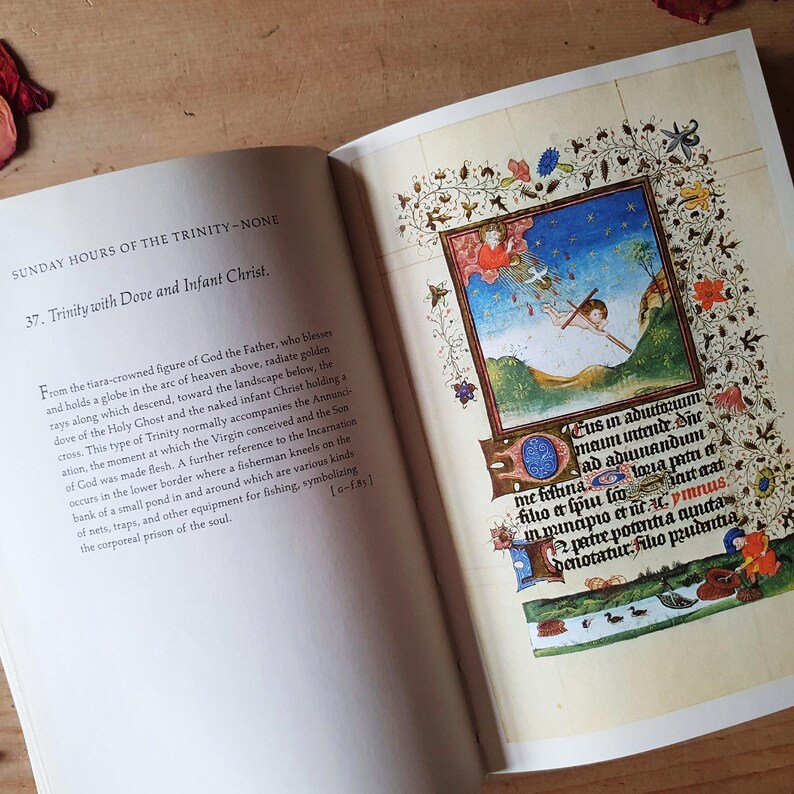 SUNDAY HOURS OF THE TRINITY–NONE
37. Trinity with Dove and Infant Christ.
From the tiara-crowned figure of God the Father, who blesses
and holds a globe in the arc of heaven above, radiate golden
rays along which descend, toward the landscape below, the
dove of the Holy Ghost and the naked infant Christ holding a
cross. This type of Trinity normally accompanies the Annunci-
ation, the moment at which the Virgin conceived and the Son
of God was made flesh. A further reference to the Incarnation
occurs in the lower border where a fisherman kneels on the
bank of a small pond in and around which are various kinds
of nets, traps, and other equipment for fishing, symbolizing
the corporeal prison of the soul. [G–f.85]
Deus in adiutorium
meum intende. Dñe
ad adiuuandum
me festina Gloria patri et
filio et spũi sco
in principio et nc̃ Ymnus.
A patre potentia cuncta
denotatur. filio prudentia